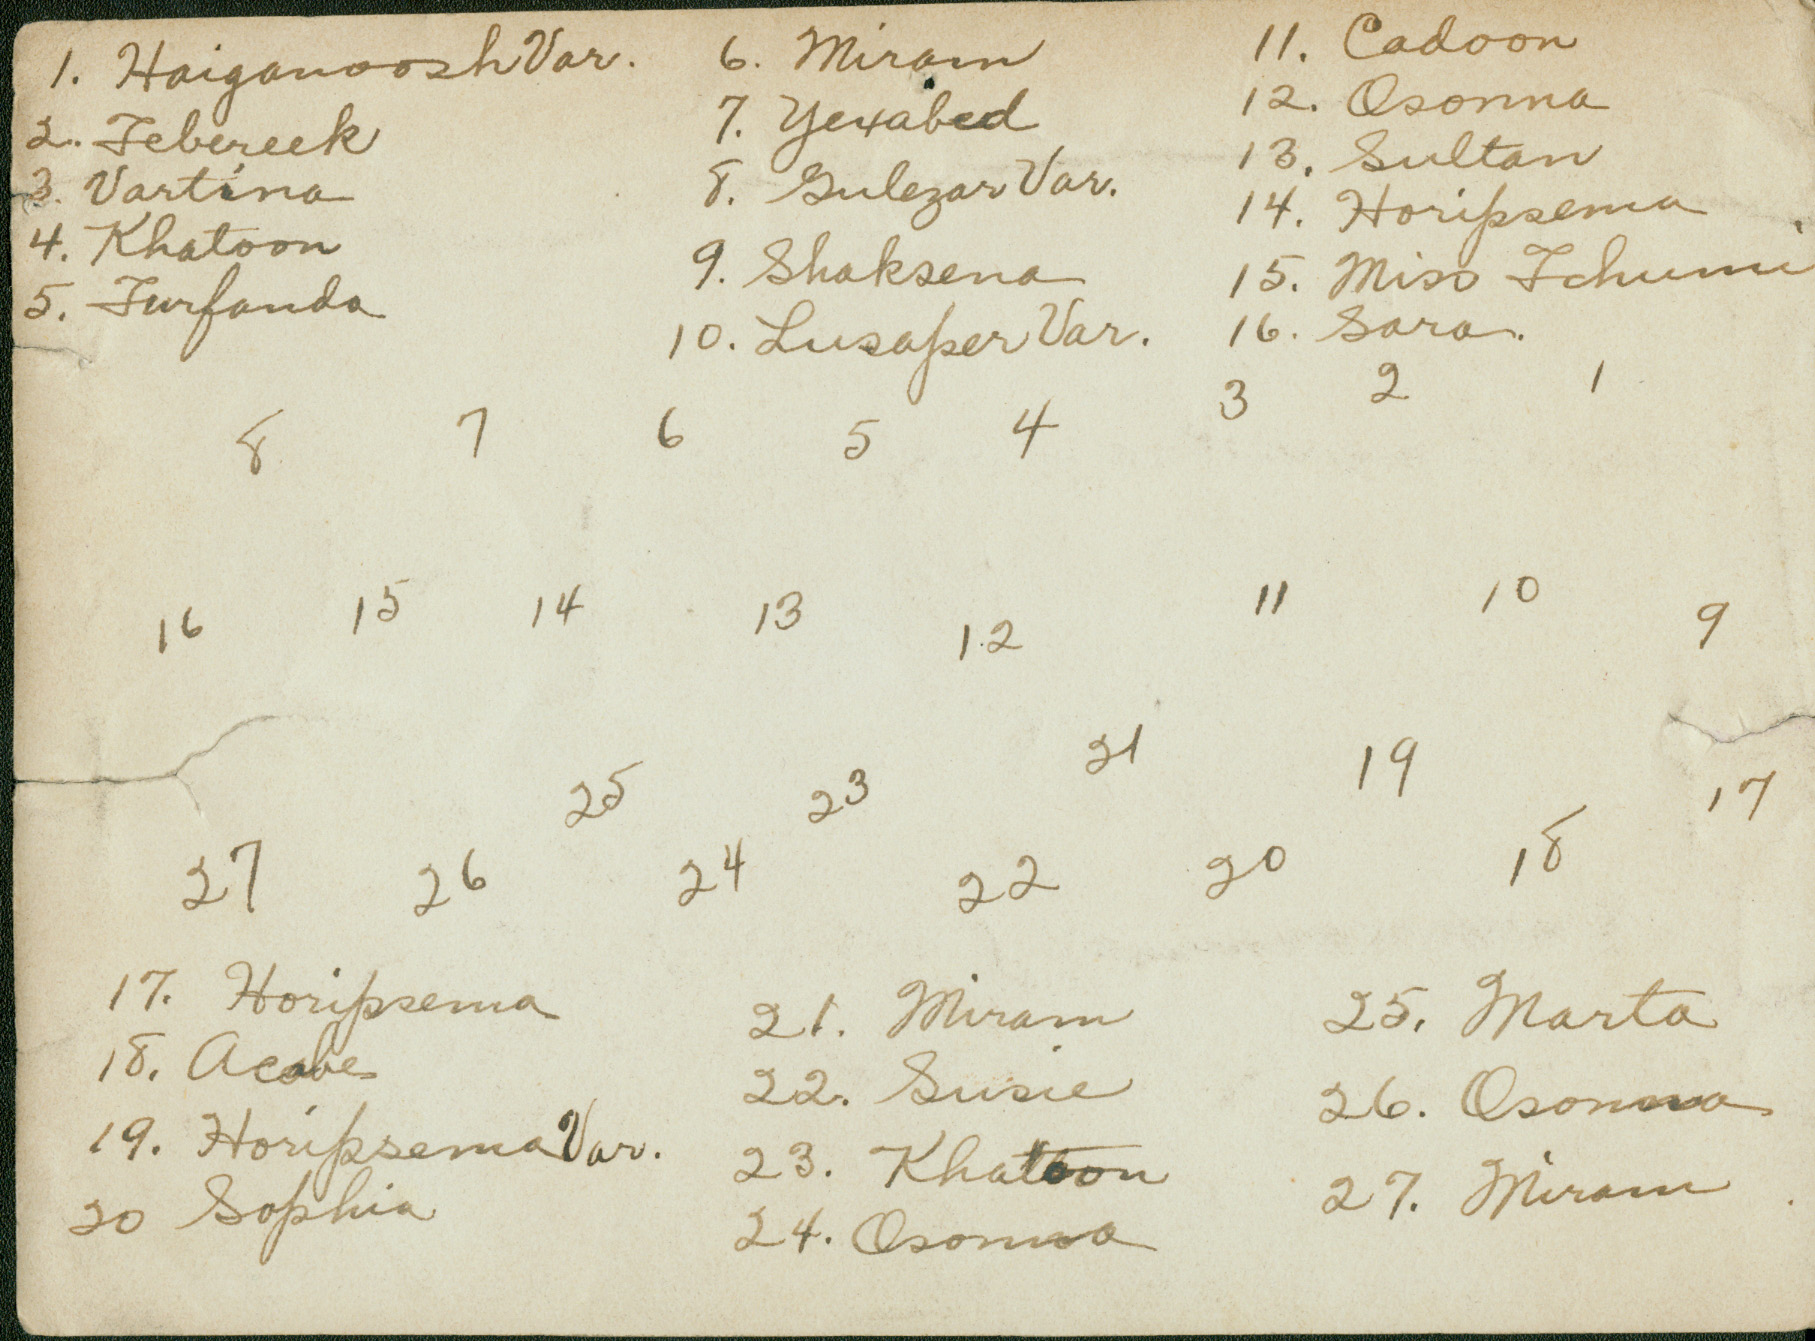 1. Haiganoosh Var.
2. Tebereek
3. Vartina
4. Khatoon
5. Turfanda
6. Miram
7. Yexabed
8. Gulezar Var.
9. Shaksena
10. Lusaper Var.
11. Cadoon
12. Osonna
13. Sultan
14. Horipsema
15. Miss Tchumi
16. Sara.
8 7 6 5 4 3 2 1
16 15 14 13 12 11 10 9
25 23 21 19 17
27 26 24 22 20 18
17. Horipsema
18. Acabe
19. Horipsema Var.
20 Sophia
21. Miram
22. Susie
23. Khatoon
24. Osonna
25. Marta
26. Osonna
27. Miram